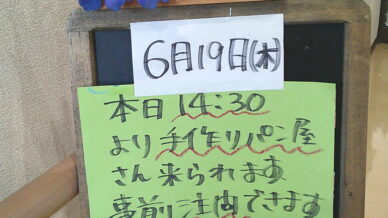 6月19日(木)
本日 14:30
より 手作りパン屋
さん 来られます
事前 注内できます